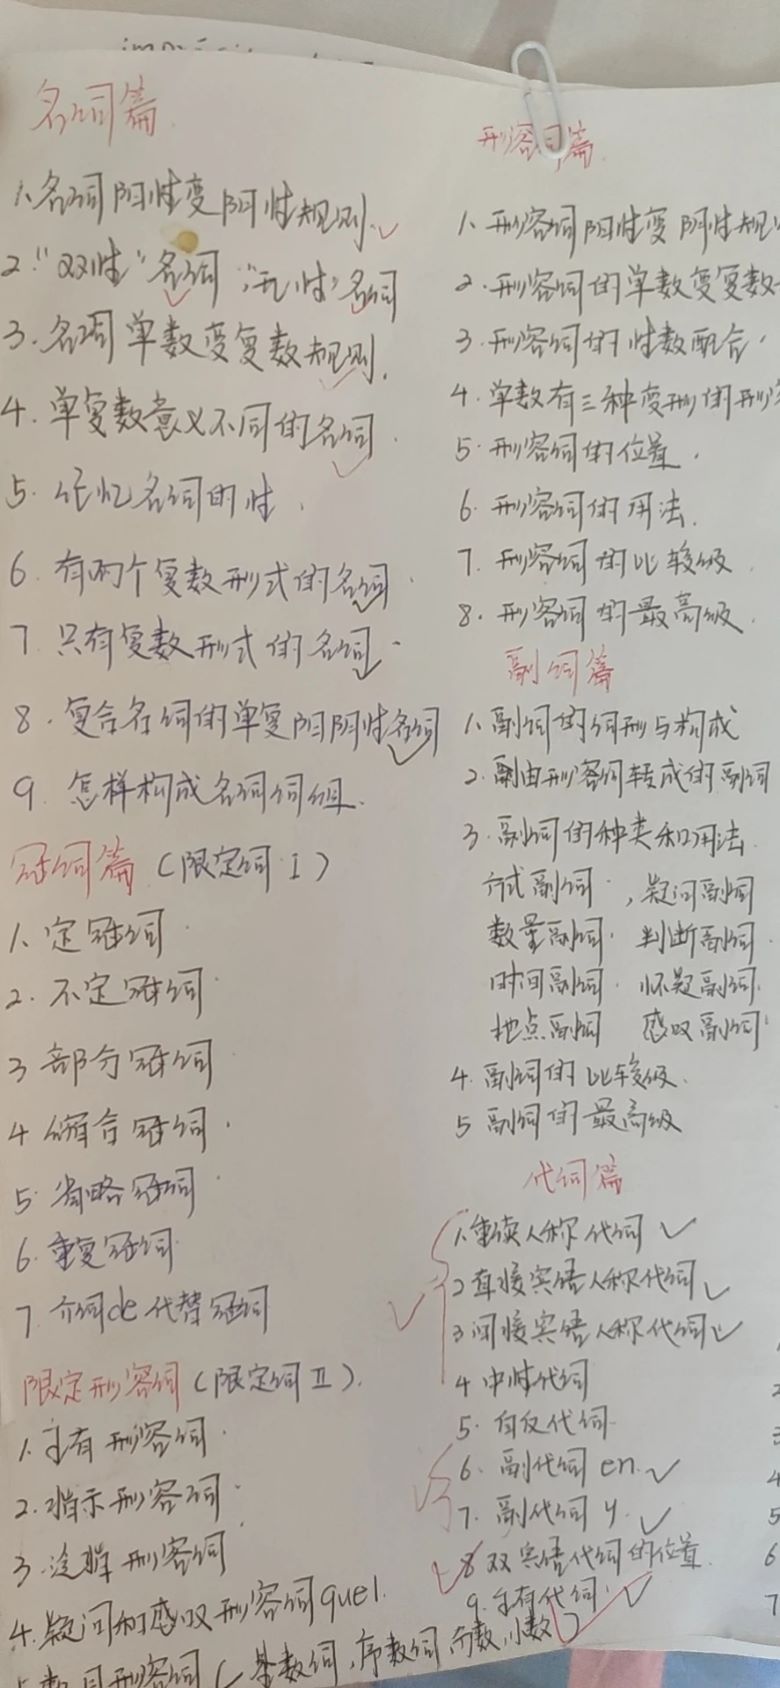 名词篇
1.名词阳性变阴性规则.
2."双性"名词 "无性"名词
3.名词单数变复数规则.
4.单复数意义不同的名词.
5.记忆名词的性.
6.有两个复数形式的名词.
7.只有复数形式的名词.
8.复合名词的单复阳阴性名词
9.怎样构成名词词组.
冠词篇(限定词I)
1.定冠词.
2.不定冠词.
3 部分冠词
4 缩合冠词.
5.省略冠词.
6.重复冠词.
7.介词de代替冠词
限定形容词(限定词II).
1.主有形容词.
2.指示形容词.
3.泛指形容词
4.疑问和感叹形容词quel.
数词形容词(基数词,序数词,分数,小数)
形容词篇.
1.形容词阳性变阴性规
2.形容词的单数变复数
3.形容词的性数配合.
4.单数有三种变形的形
5.形容词的位置.
6.形容词的用法.
7.形容词的比较级.
8.形容词的最高级.
副词篇
1.副词的词形与构成
2.由形容词转成的副词
3.副词的种类和用法.
方式副词.,疑问副词
数量副词.判断副词.
时间副词.怀疑副词.
地点副词 感叹副词
4.副词的比较级.
5 副词的最高级
代词篇
1.重读人称代词
2直接宾语人称代词
3间接宾语人称代词
4 中性代词
5.自反代词
6.副代词en.
7.副代词y.
8双宾语代词的位置.
9.主有代词.